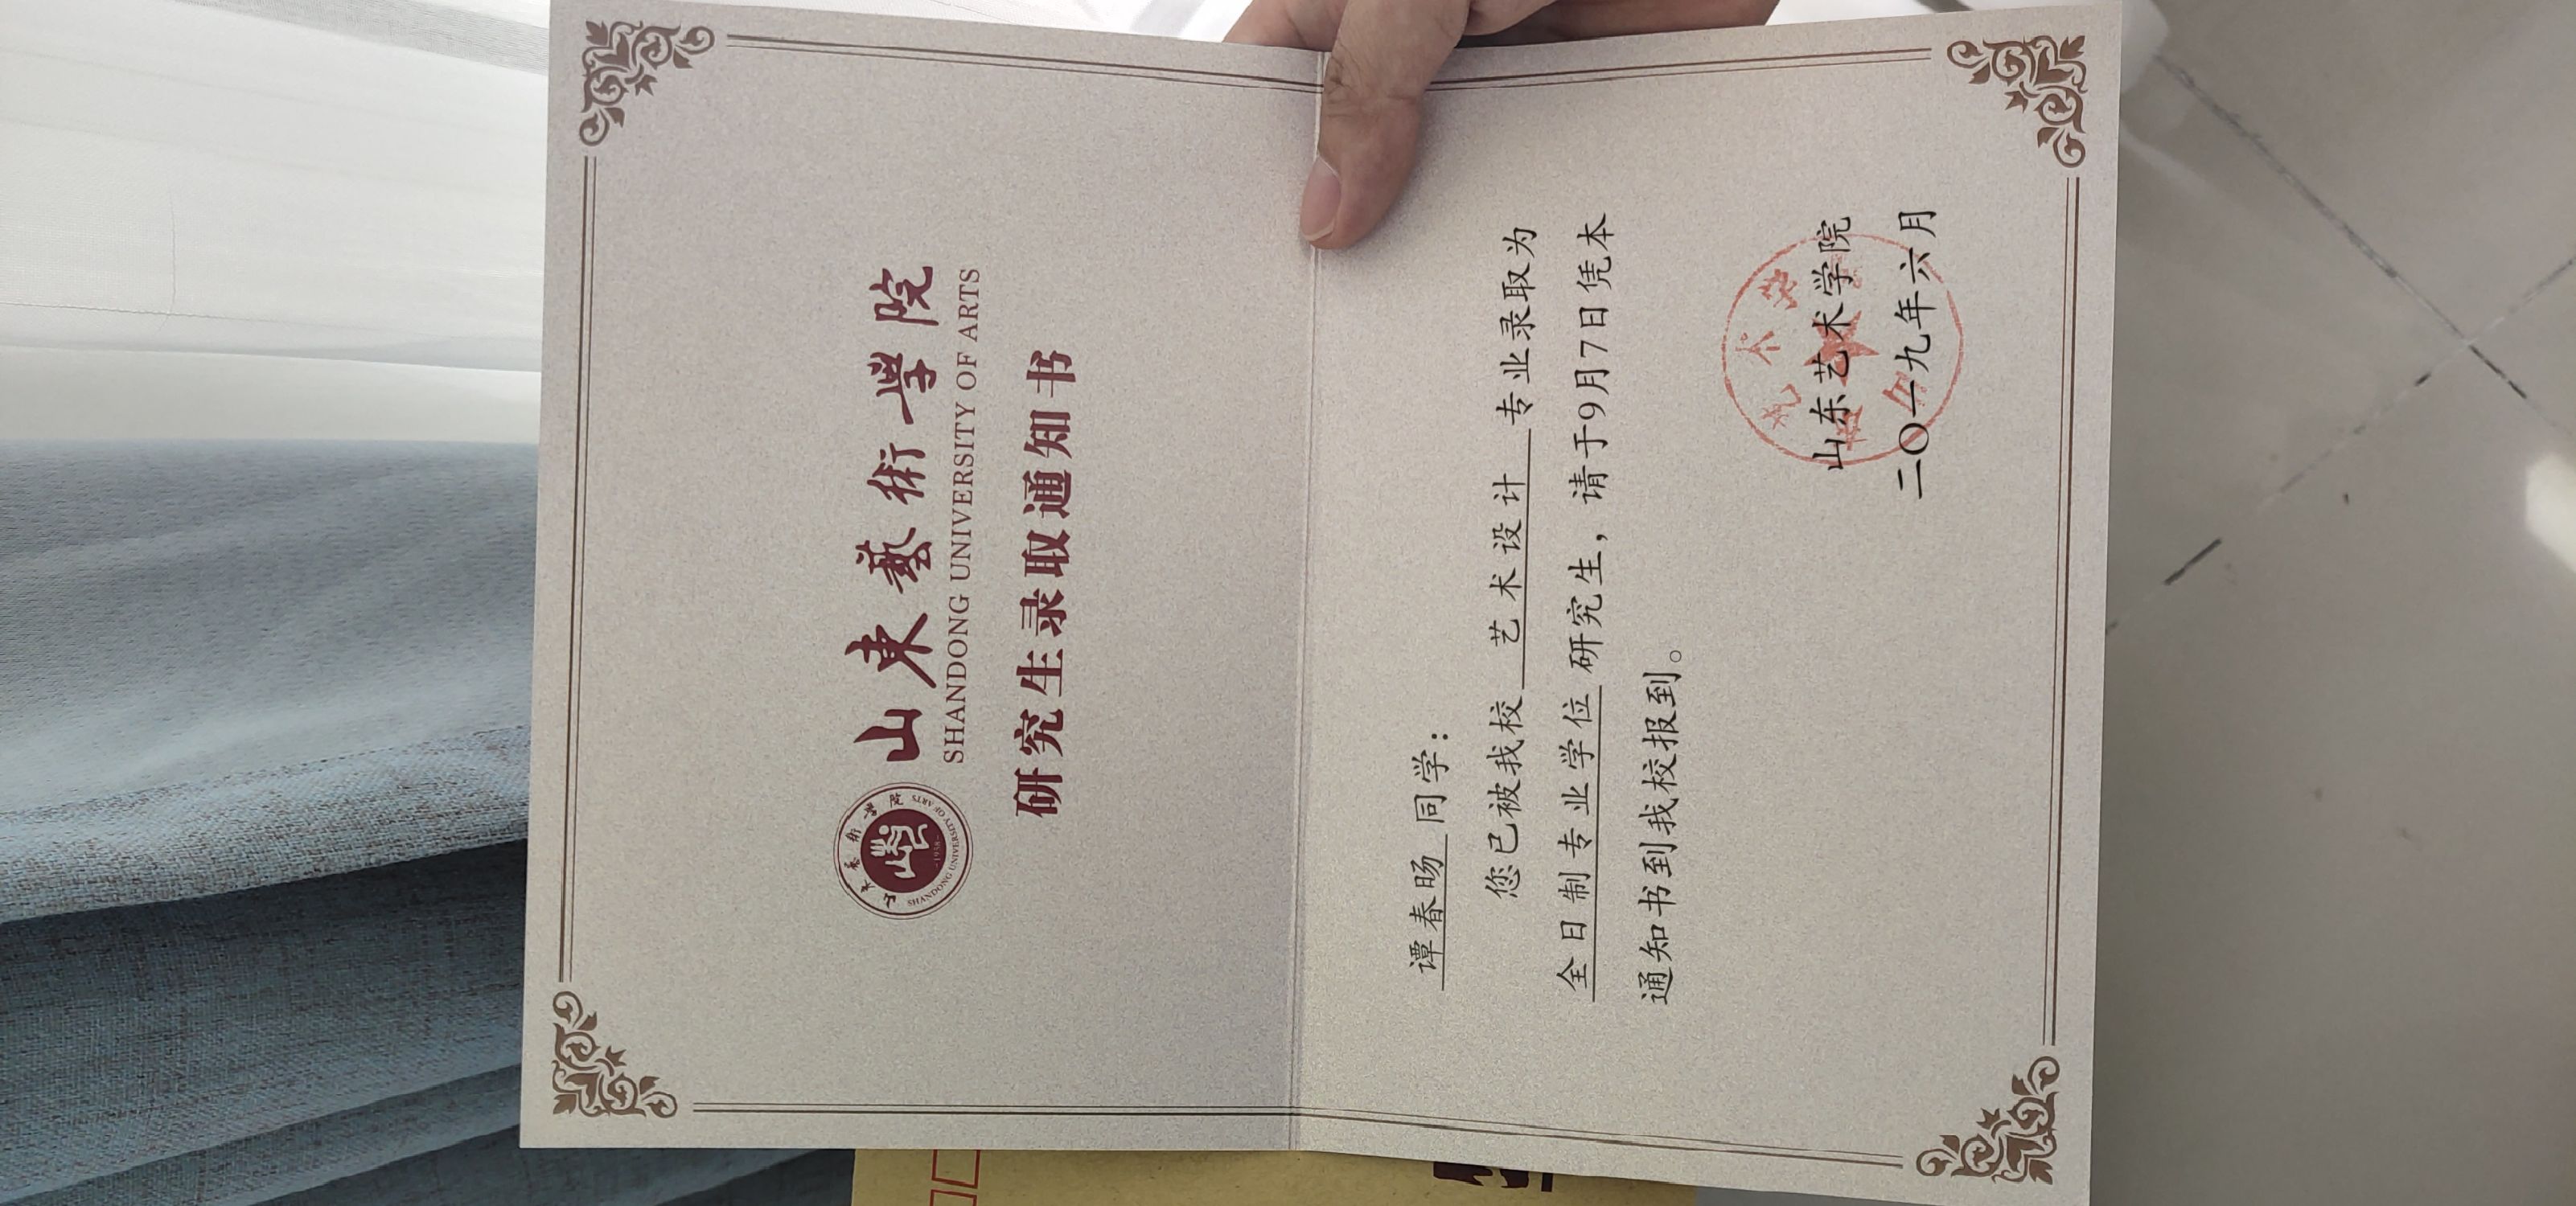 山東藝術學院
SHANDONG UNIVERSITY OF ARTS
山東藝術學院
SHANDONG UNIVERSITY OF ARTS
-1958-
研究生录取通知书
谭春旸 同学：
您已被我校 艺术设计 专业录取为
全日制专业学位 研究生，请于9月7日凭本
通知书到我校报到。
山东艺术学院
二〇一九年六月